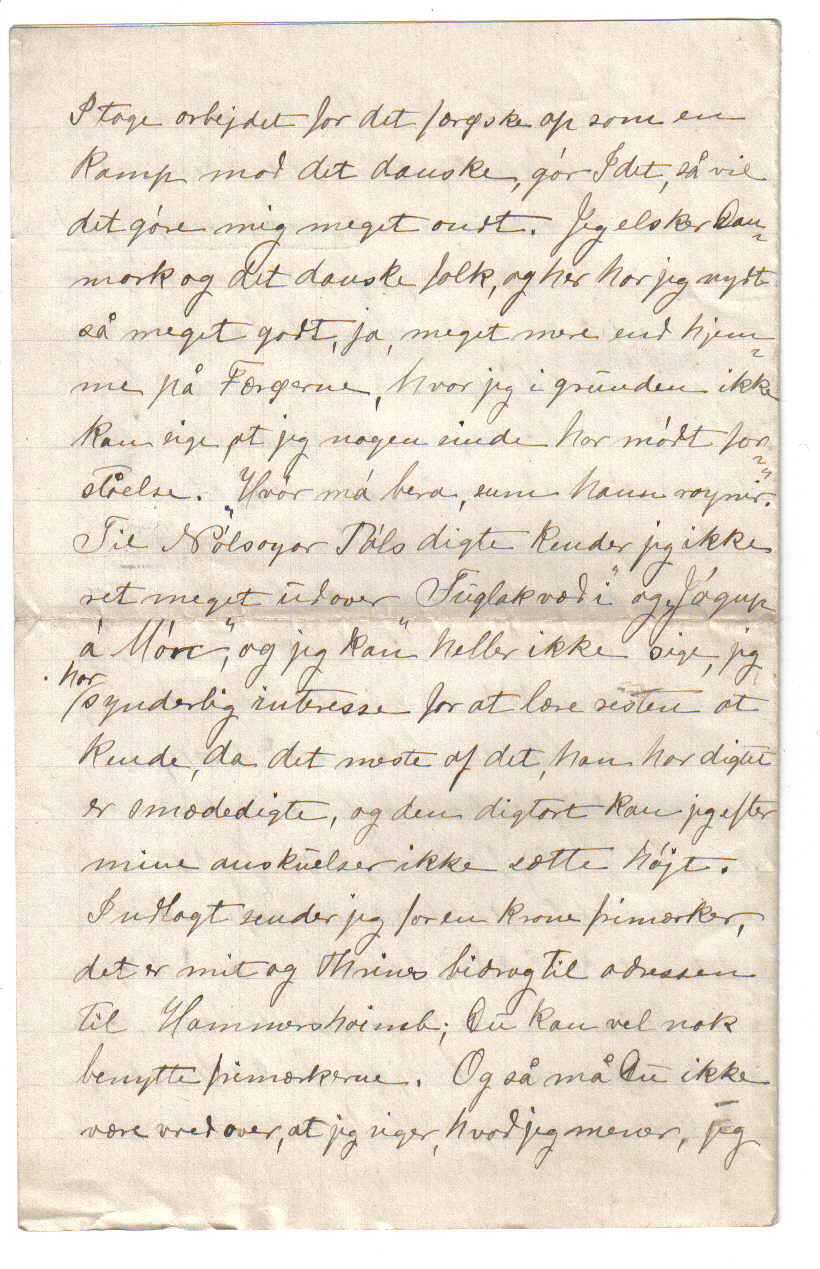 I tage arbejdet for det færøske op som en
kamp mod det danske, gör I det, så vil
det göre mig meget ondt. Jeg elsker Dan=
mark og det danske folk, og her har jeg nydt
så meget godt, ja, meget mere end hjem=
me på Færøerne, hvor jeg i grunden ikke
kan sige, at jeg nogen sinde har mödt for=
ståelse. "Hvör má bera, sum hann roynir."
Til Nólsoyar Páls digte kender jeg ikke
ret meget udover "Fuglakvæði" og "Jágup
á Món", og jeg kan heller ikke sige, jeg
har synderlig interesse for at lære resten at
kende, da det meste af det, han har digtet
er smædedigte, og den digtart kan jeg efter
mine anskuelser ikke sætte höjt.
Indlagt sender jeg for en krone frimærker,
det er mit og Thrines bidrag til adressen
til Hammershaimb; Du kan vel nok
benytte frimærkerne. Og så må Du ikke
være vred over, at jeg siger, hvad jeg mener, jeg